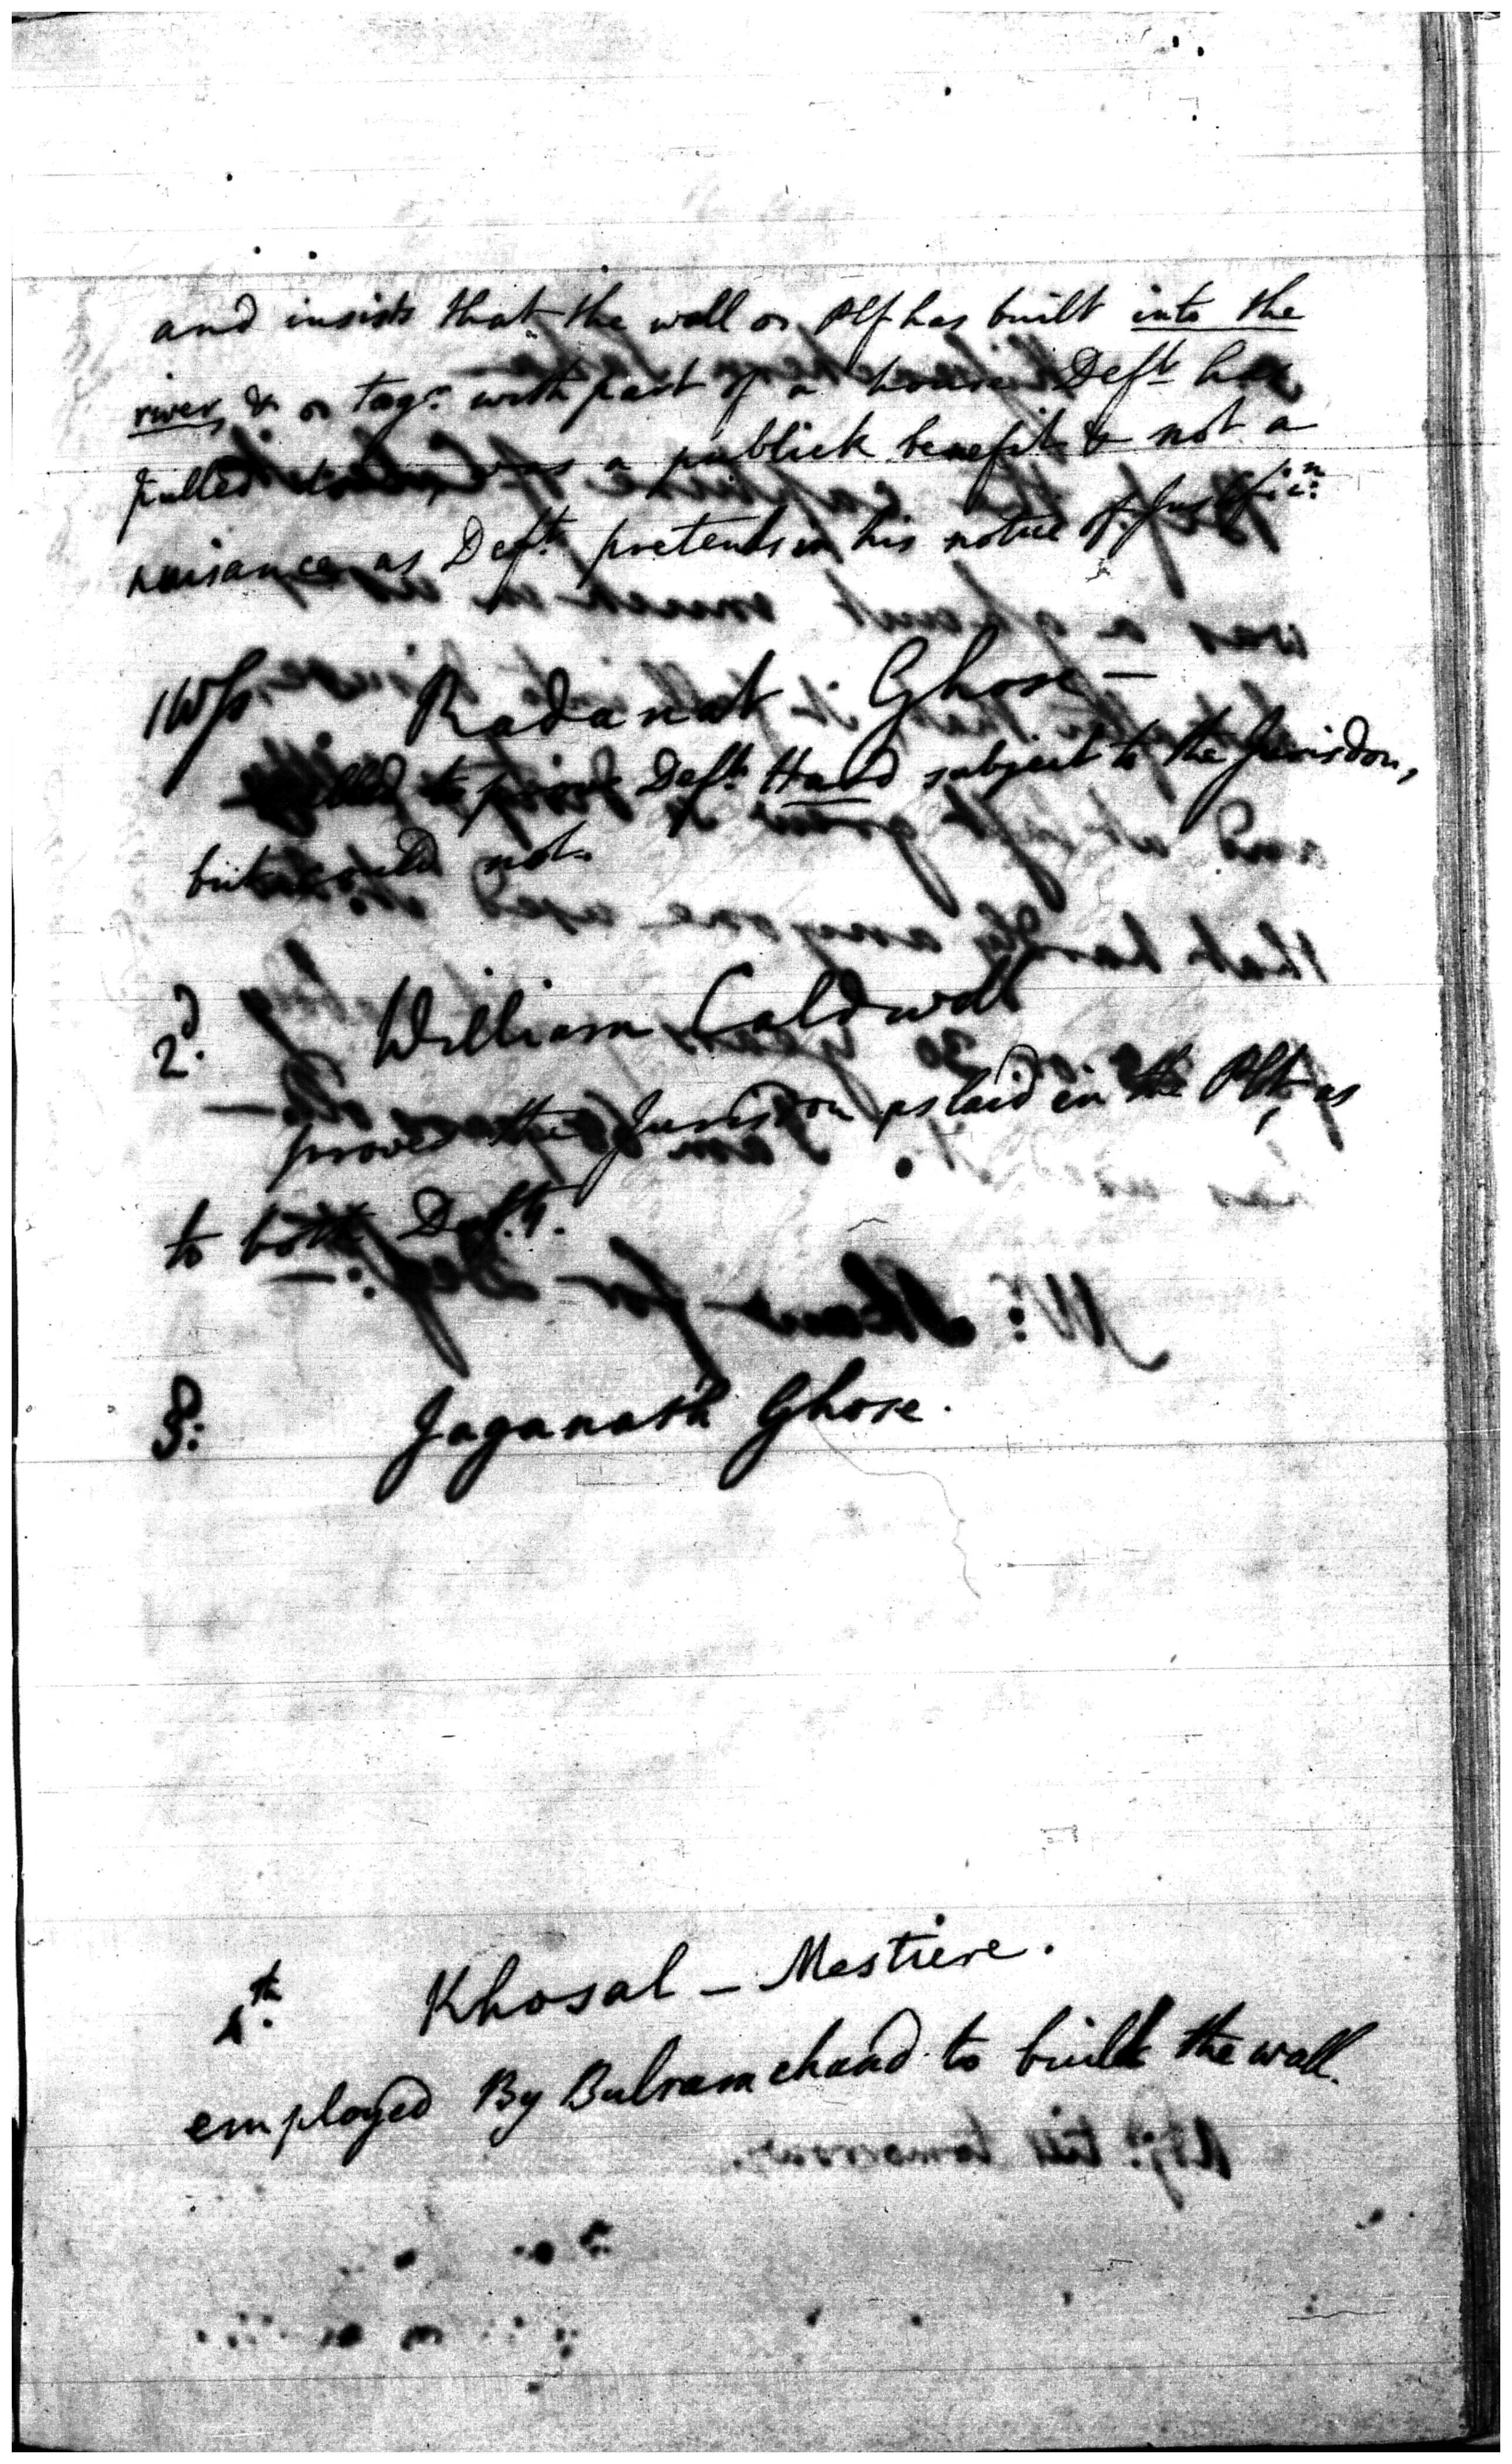 and insists that the wall or Plf has built into the
river, & or togr. with part of a house Deft. has
pulled down, was a publick benefit & not a
nuisance as Deft. pretends in his notice of Justificn.
1 Wss. Radanat Ghose —
called to prove Deft. Hand subject to the Jurisdon,
but could not.
2d. William Caldwell
proves the Jurisdon as laid in the Plt, as
to both Defts.
3: Jaganath Ghose.
4th. Khosal — Mestiere.
employed By Bulramchand to build the wall.